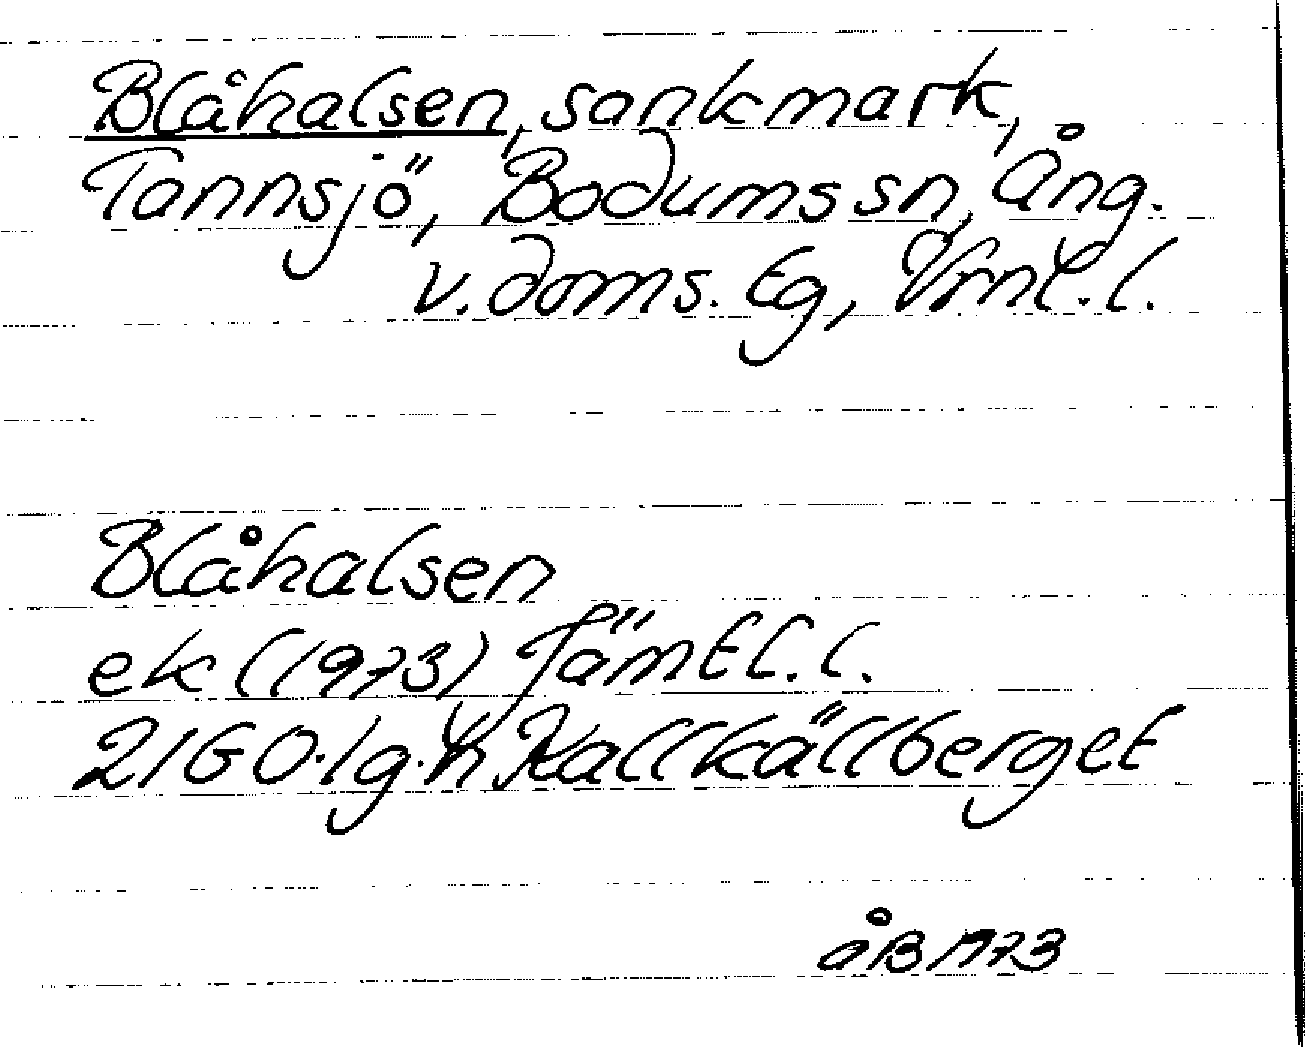 Blåhalsen, sankmark,
Tannsjö, Bodums sn, Ång.
v. doms. Eg, Vrnl. l.
Blåhalsen
ek (1973) Jämtl. l.
21G 0. lg. h Kallkällberget
åB 1973